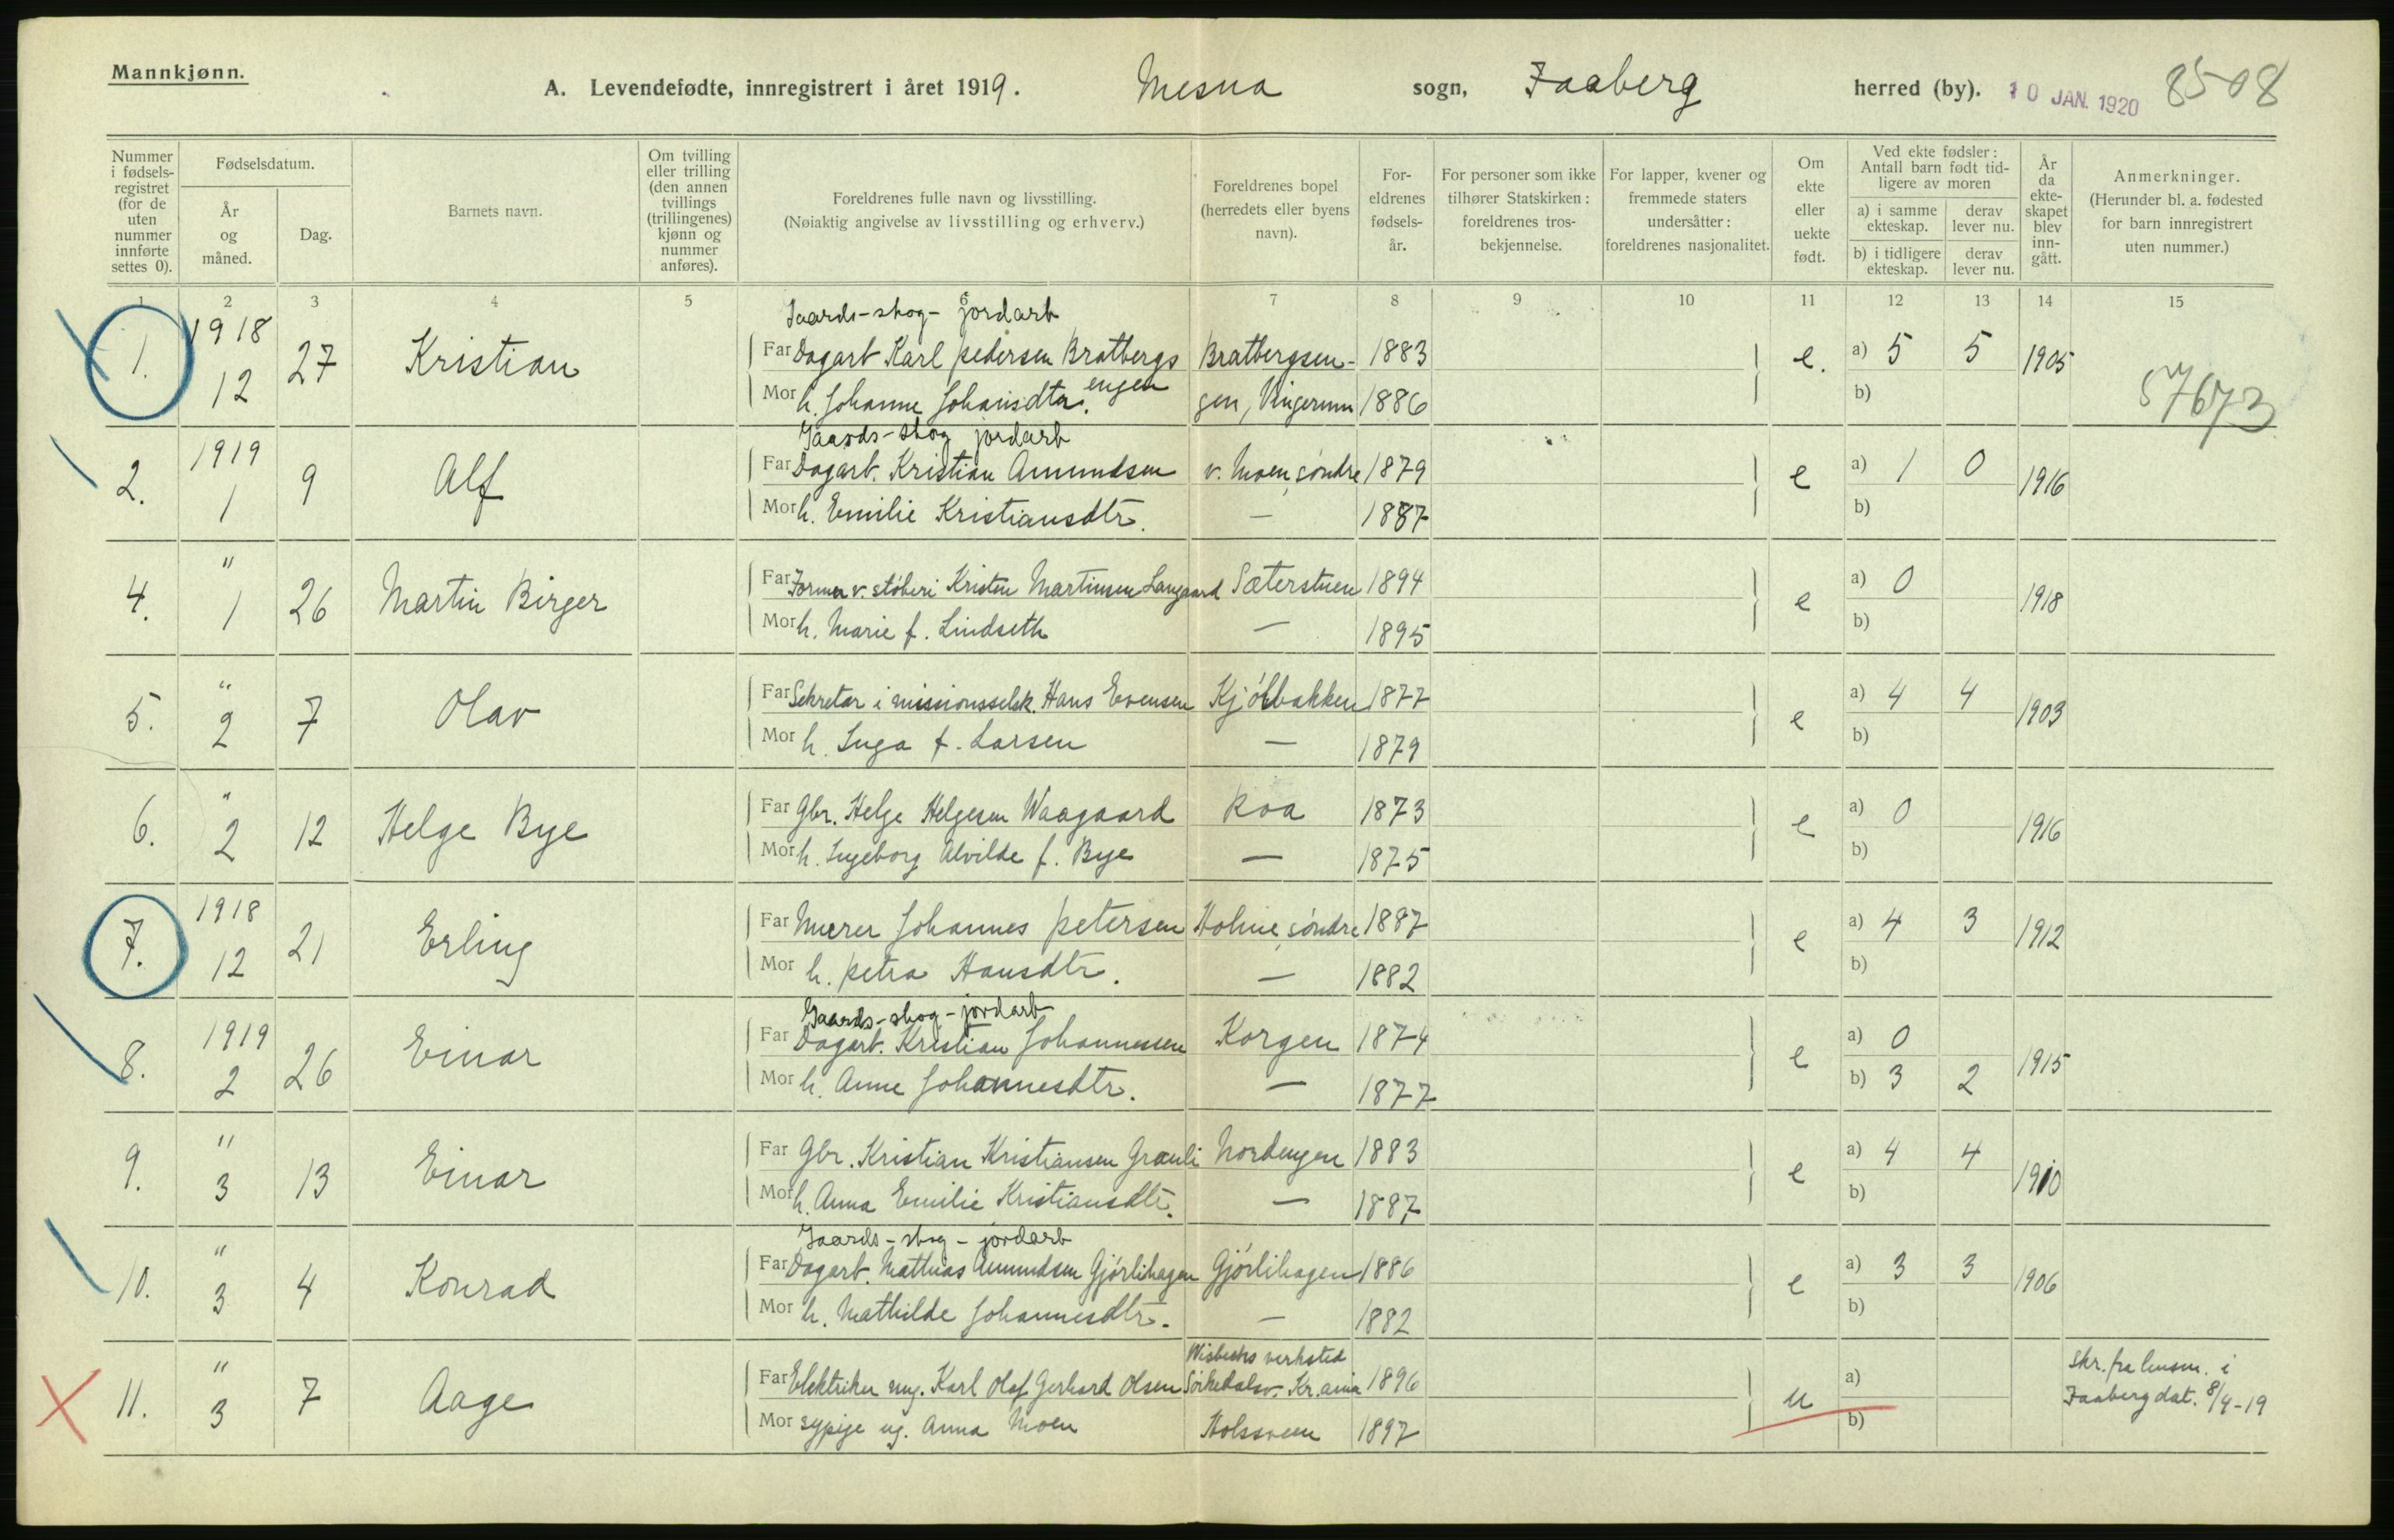 Mannkjønn.
A. Levendefødte, innregistrert i året 1919. Mesna sogn, Faaberg herred (by). 10 JAN. 1920 8508
Nummer i fødselsregistret (for de uten nummer innførte settes 0).
Fødselsdatum.
År og måned.
Dag.
Barnets navn.
Om tvilling eller trilling (den annen tvillings (trillingenes) kjønn og nummer anføres).
Foreldrenes fulle navn og livsstilling.
(Nøiaktig angivelse av livsstilling og erhverv.)
Foreldrenes bopel (herredets eller byens navn).
Foreldrenes fødselsår.
For personer som ikke tilhører Statskirken: foreldrenes trosbekjennelse.
For lapper, kvener og fremmede staters undersåtter: foreldrenes nasjonalitet.
Om ekte eller uekte født.
Ved ekte fødsler: Antall barn født tidligere av moren
a) i samme ekteskap. derav lever nu.
b) i tidligere ekteskap. derav lever nu.
År da ekteskapet blev inngått.
Anmerkninger.
(Herunder bl. a. fødested for barn innregistrert uten nummer.)
1 2 3 4 5 6 7 8 9 10 11 12 13 14 15
Gaards-skog- jordarb
1. 1918 12 27 Kristian Far Dagarb Karl Pedersen Bratbergsengen Bratbergsen- 1883 e. a) 5 5 1905
Mor h. Johanne Johansdtr. gen, Vingerum 1886 b) 57673
Gaards-skog jordarb
2. 1919 1 9 Alf Far Dagarb. Kristian Amundsen v. Moen søndre 1879 e a) 1 0 1916
Mor h. Emilie Kristiansdtr. — 1887 b)
4. " 1 26 Martin Birger Far Former v. støberi Kristen Martinsen Langaard Sæterstuen 1894 e a) 0 1918
Mor h. Marie f. Lindseth — 1895 b)
5. " 2 7 Olav Far Sekretær i missionsselsk. Hans Evensen Kjølbakken 1877 e a) 4 4 1903
Mor h. Inga f. Larsen — 1879 b)
6. " 2 12 Helge Bye Far Gbr. Helge Helgesen Waagaard Roa 1873 e a) 0 1916
Mor h. Ingeborg Alvilde f. Bye — 1875 b)
7. 1918 12 21 Erling Far Murer Johannes Petersen Holme søndre 1887 e a) 4 3 1912
Mor h. Petra Hansdtr. — 1882 b)
Gaards-skog-jordarb
8. 1919 2 26 Einar Far Dagarb. Kristian Johannessen Korgen 1874 e a) 0 1915
Mor h. Anne Johannesdtr. — 1877 b) 3 2
9. " 3 13 Einar Far Gbr. Kristian Kristiansen Granli Nordengen 1883 e a) 4 4 1910
Mor h. Anna Emilie Kristiansdtr. — 1887 b)
Gaards-skog-jordarb
10. " 3 4 Konrad Far Dagarb. Mathias Amundsen Gjørlihagen Gjørlihagen 1886 e a) 3 3 1906
Mor h. Mathilde Johannesdtr. — 1882 b)
verksted
11. " 3 7 Aage Far Elektriker ung. Karl Olaf Gerhard Olsen Sørkedalsv. Kr.ania 1896 u a) skr. fra lensm. i
Mor sypige ug. Anna Moen 1897 b) Faaberg dat. 8/4-19